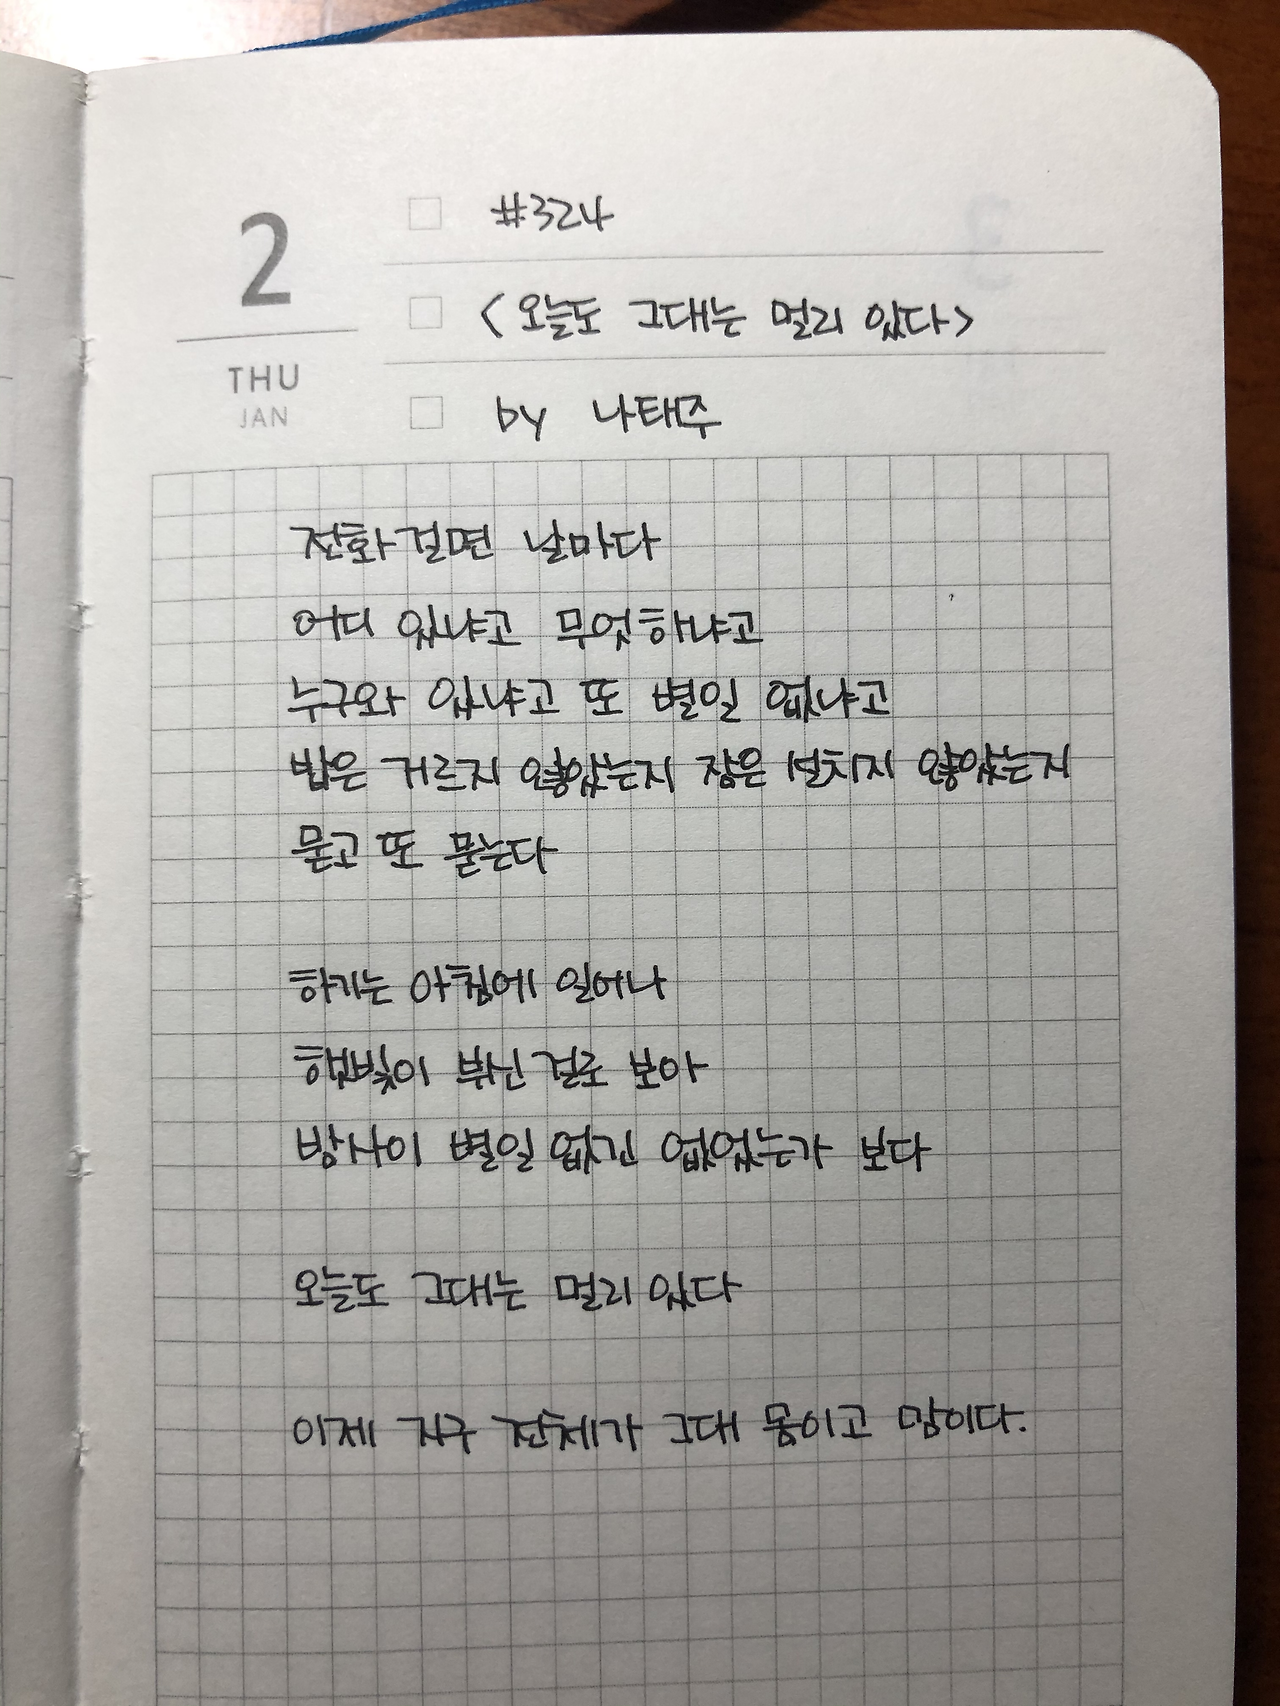 2
THU
JAN
#324
<오늘도 그대는 멀리 있다>
by 나태주
전화 걸면 날마다
어디 있냐고 무엇하냐고
누구와 있냐고 또 별일 없냐고
밥은 거르지 않았는지 잠은 설치지 않았는지
묻고 또 묻는다
하기는 아침에 일어나
햇빛이 부신 걸로 보아
밤사이 별일 없긴 없었는가 보다
오늘도 그대는 멀리 있다
이제 지구 전체가 그대 몸이고 맘이다.